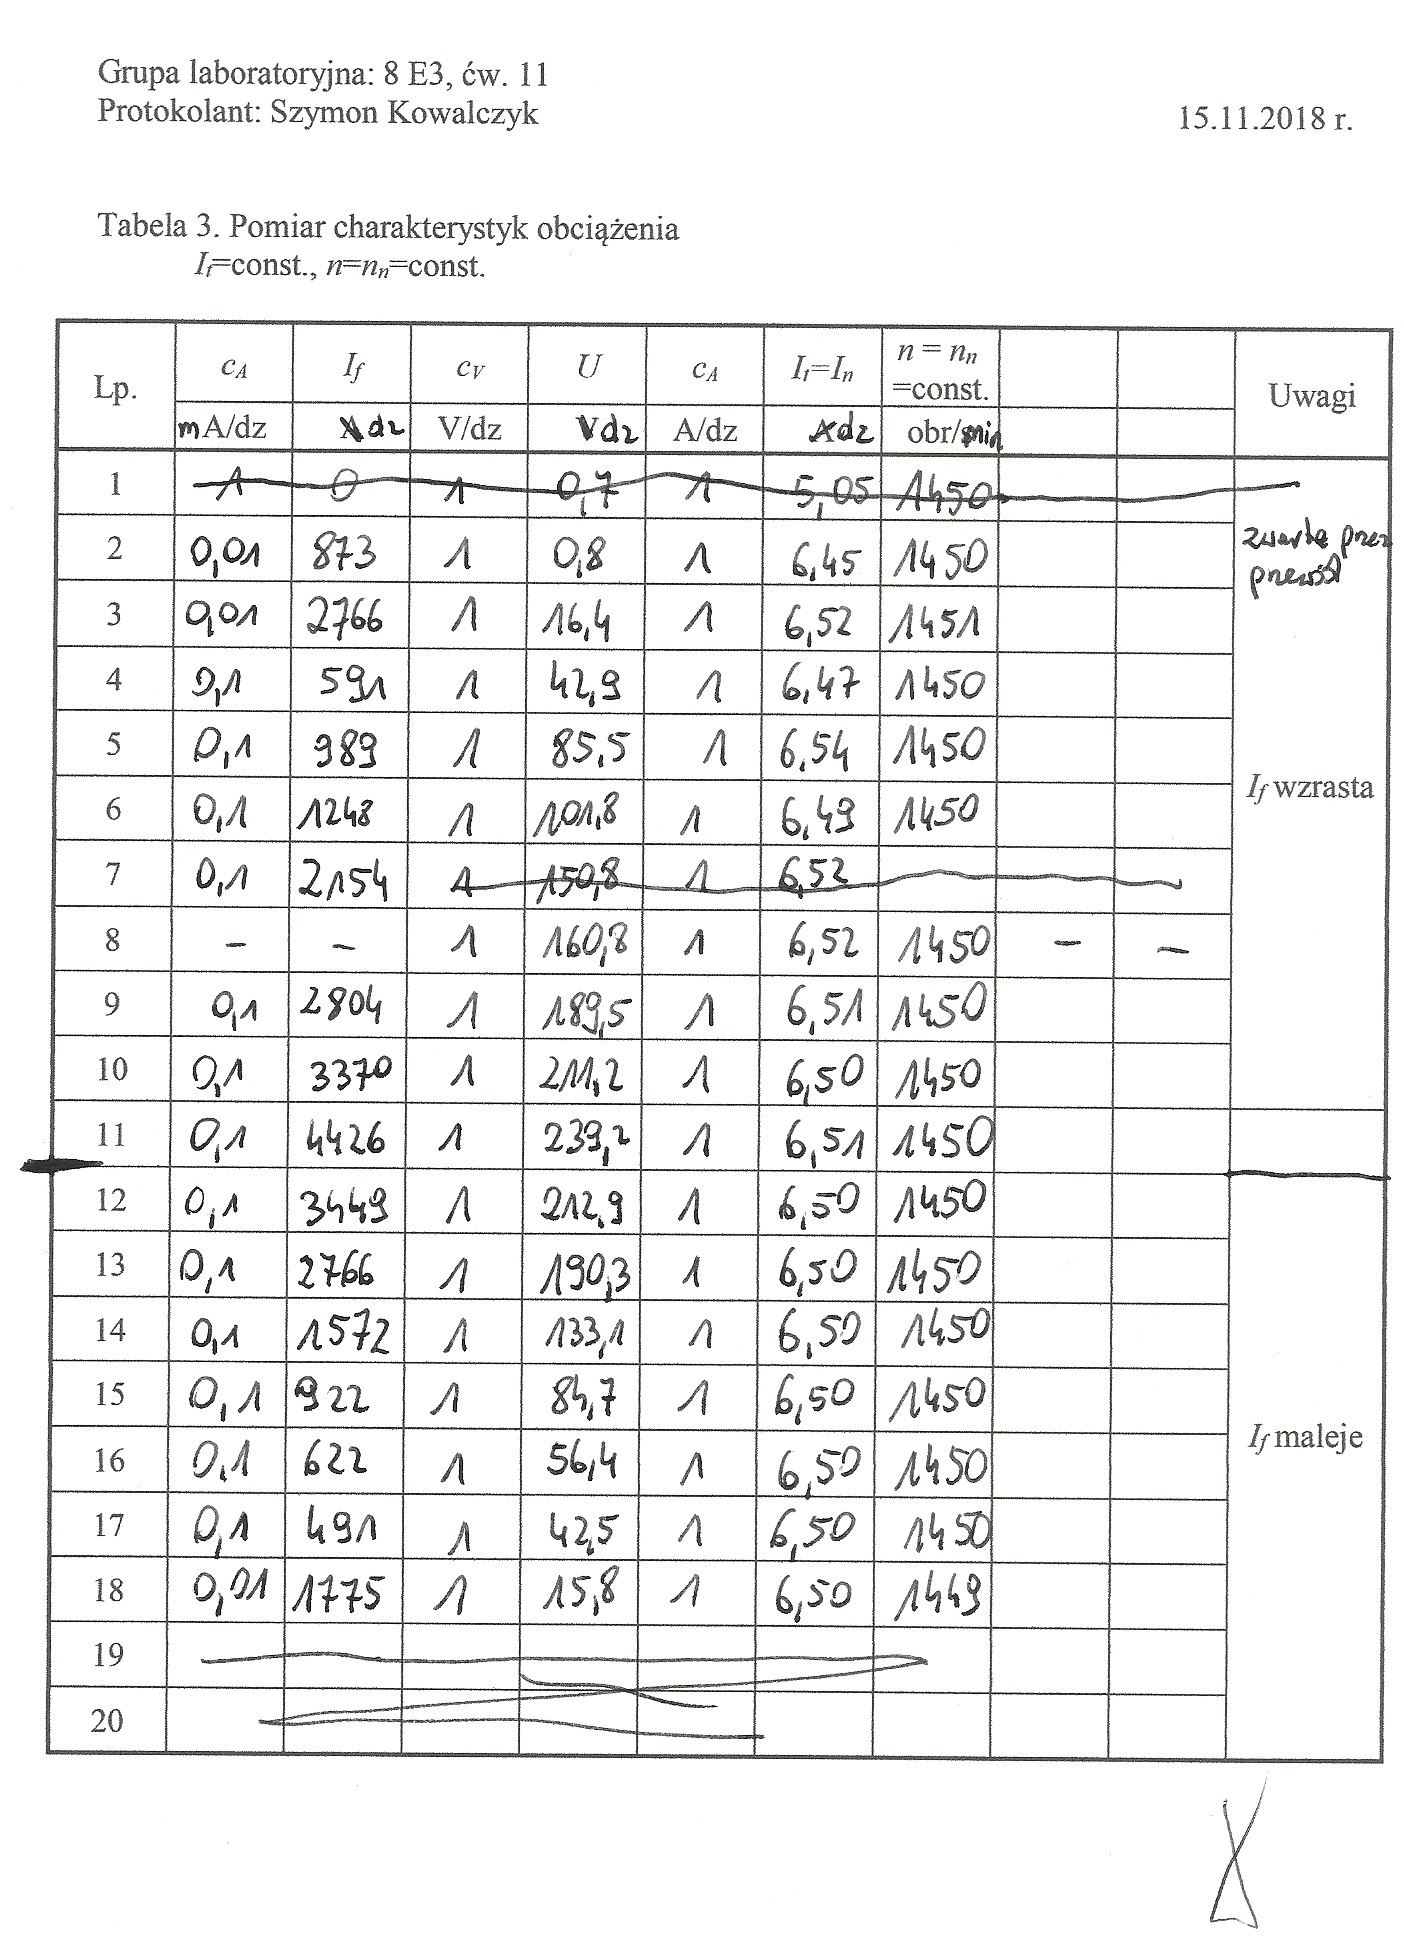 Grupa laboratoryjna: 8 E3, ćw. 11
Protokolant: Szymon Kowalczyk
15.11.2018 r.
Tabela 3. Pomiar charakterystyk obciążenia
It=const., n=nn=const.
Lp. cA If cV U cA It=In n = nn =const. Uwagi
mA/dz dz V/dz dz A/dz dz obr/min
1 1 0 1 0,7 1 5,05 1450
2 0,01 873 1 0,8 1 6,45 1450 zwarte przez
przewód
3 0,01 2766 1 16,4 1 6,52 1451
4 0,1 591 1 42,9 1 6,47 1450
5 0,1 989 1 85,5 1 6,54 1450
6 0,1 1248 1 101,8 1 6,49 1450 If wzrasta
7 0,1 2154 1 150,8 1 6,52
8 – – 1 160,8 1 6,52 1450 – –
9 0,1 2804 1 189,5 1 6,51 1450
10 0,1 3370 1 211,2 1 6,50 1450
11 0,1 4426 1 239,2 1 6,51 1450
12 0,1 3449 1 212,9 1 6,50 1450
13 0,1 2766 1 190,3 1 6,50 1450
14 0,1 1572 1 133,1 1 6,50 1450
15 0,1 922 1 84,7 1 6,50 1450
16 0,1 622 1 56,4 1 6,50 1450 If maleje
17 0,1 491 1 42,5 1 6,50 1450
18 0,01 1775 1 15,8 1 6,50 1449
19
20